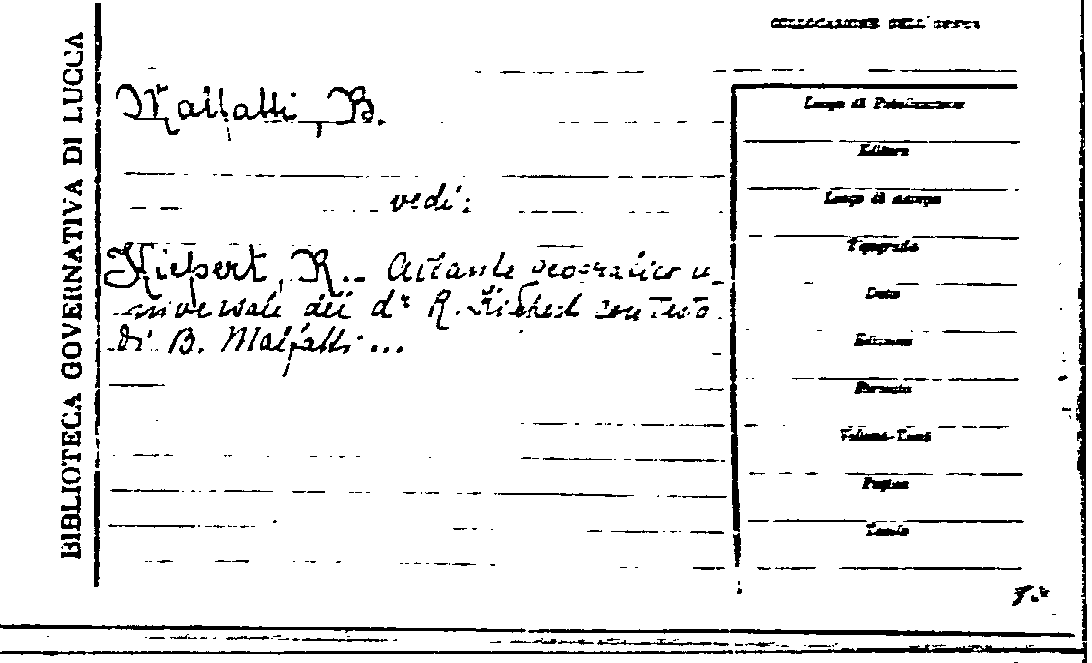 BIBLIOTECA GOVERNATIVA DI LUCCA
COLLOCAZIONE DELL'OPERA
Malfatti, B.
vedi:
Kiepert, R._ Atlante geografico u_
niversale del dr R. Kiepert con testo
di B. Malfatti...
Luogo di Pubblicazione
Editore
Luogo di stampa
Tipografia
Data
Edizione
Formato
Volume-Tomo
Pagine
Tavole